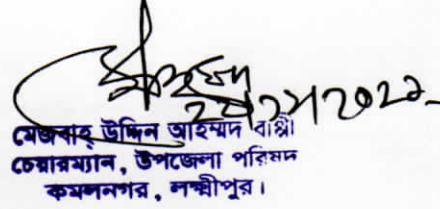 মেজবাহ্ উদ্দিন আহম্মদ বাপ্পী
চেয়ারম্যান, উপজেলা পরিষদ
কমলনগর, লক্ষ্মীপুর।